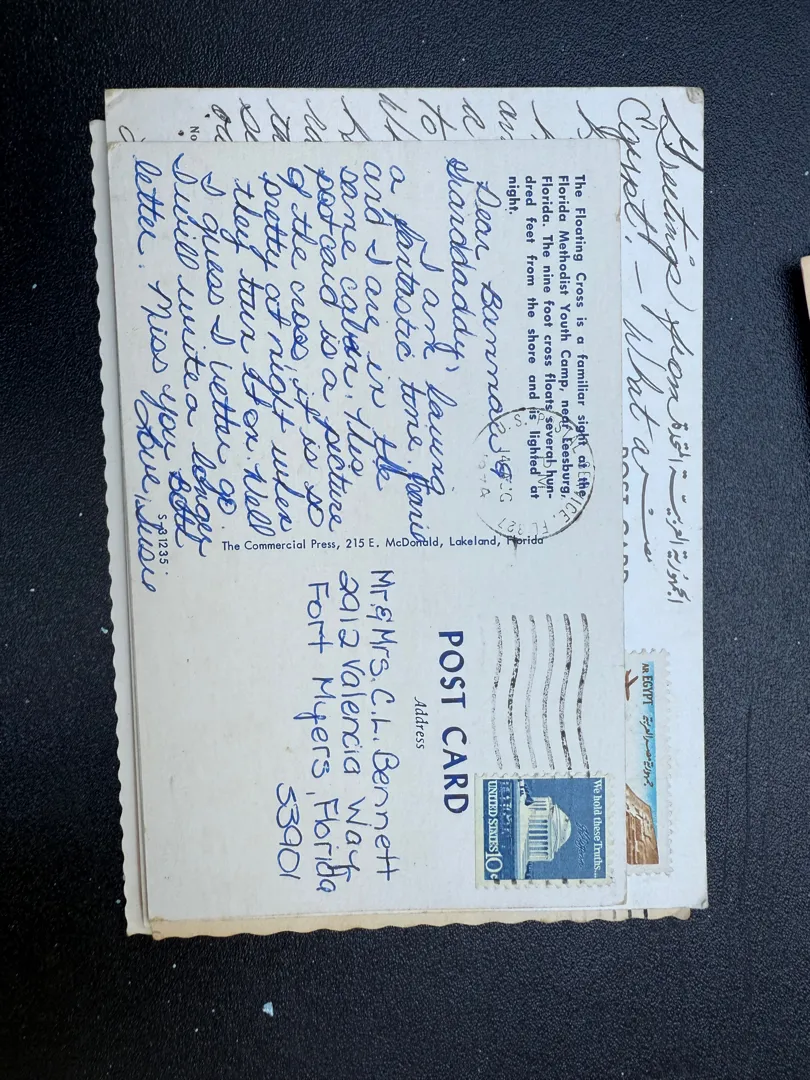 The Floating Cross is a familiar sight at the
Florida Methodist Youth Camp, near Leesburg,
Florida. The nine foot cross floats several hun-
dred feet from the shore and is lighted at
night.
Dear Bannaer &
Granddaddy,
I am having
a fantastic time.
and I are in the
same cabin. This
postcard is a picture
of the cross, it is so
pretty at night when
they turn it on. Well
I guess I better go.
I will write a longer
letter. Miss you both
Love, Susie
S 731235
The Commercial Press, 215 E. McDonald, Lakeland, Florida
POST CARD
Address
Mr & Mrs. C. L. Bennett
2912 Valencia Way
Fort Myers, Florida
33901
We hold these Truths...
UNITED STATES 10c
Greetings from
Egypt! - What a
POST CARD
AR EGYPT
No